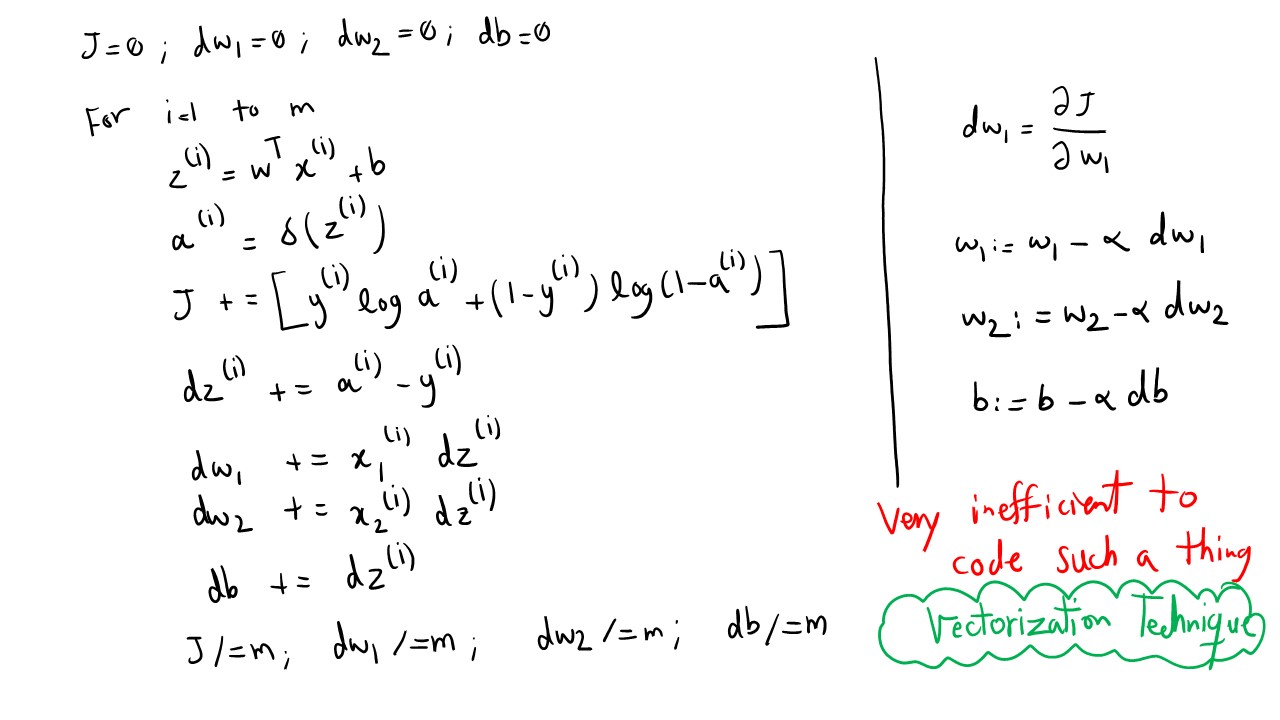 J=0 ; dw₁=0 ; dw₂=0 ; db=0
For i=1 to m
z⁽ⁱ⁾ = wᵀ x⁽ⁱ⁾ + b
a⁽ⁱ⁾ = δ(z⁽ⁱ⁾)
J += [y⁽ⁱ⁾ log a⁽ⁱ⁾ + (1-y⁽ⁱ⁾) log(1-a⁽ⁱ⁾)]
dz⁽ⁱ⁾ += a⁽ⁱ⁾ - y⁽ⁱ⁾
dw₁ += x₁⁽ⁱ⁾ dz⁽ⁱ⁾
dw₂ += x₂⁽ⁱ⁾ dz⁽ⁱ⁾
db += dz⁽ⁱ⁾
J/=m ; dw₁ /=m ; dw₂ /=m ; db/=m
dw₁ = ∂J / ∂w₁
w₁ := w₁ - α dw₁
w₂ := w₂ - α dw₂
b := b - α db
Very inefficient to
code such a thing
Vectorization Technique